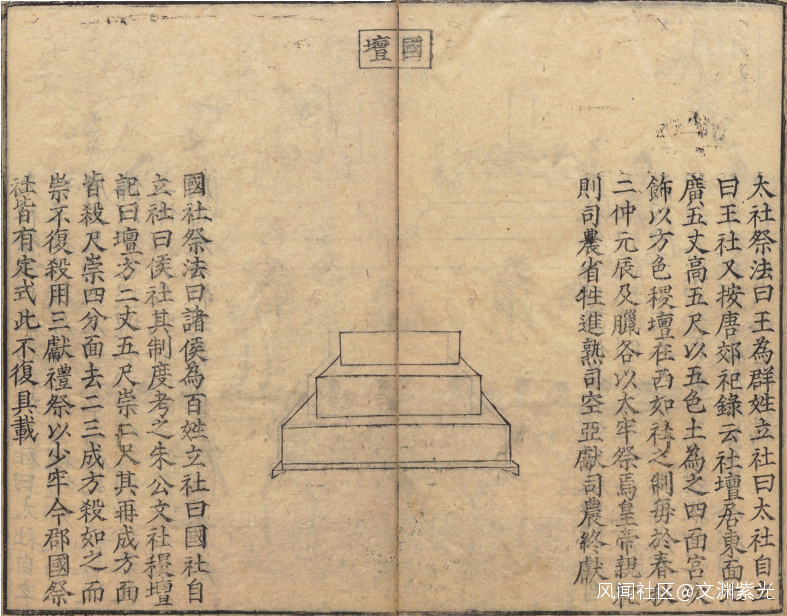 國壇
太社祭法曰王為群姓立社曰太社自立
曰王社又按唐郊祀錄云社壇居東面
廣五丈高五尺以五色土為之四面宮
飾以方色稷壇在西如社之制每於春
二仲元辰及臘各以太牢祭焉皇帝親
則司農省牲進熟司空亞獻司農終獻
國社祭法曰諸侯為百姓立社曰國社自
立社曰侯社其制度考之朱公文社稷壇
記曰壇方二丈五尺崇二尺其再成方面
皆殺尺崇四分面去二三成方殺如之而
崇不復殺用三獻禮祭以少牢今郡國祭
社皆有定式此不復具載
风闻社区@文渊紫光